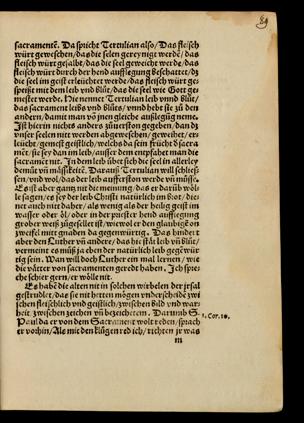 89
sacramentē. Da spricht Tertulian also/ Das fleisch
würt geweschen/ das die selen gereyniget werdē/ das
fleisch würt gesalbt/ das die seel geweicht werde/ das
fleisch würt durch der hend aufflegung beschattet/ dz
die seel im geist erleüchtet werde/ das fleisch würt ge-
speißt mit dem leib vnd blůt/ das die seel wie Gott ge
mestet werde. Hie nennet Tertulian leib vnnd blůt/
das sacrament leibs vnd blůtes/ vnnd hebt sie zů den
andern/ damit man vō jnen gleiche außlegūg neme.
Ist hierin nichts anders zůuerston gegeben/ dan dz
vnser seelen nitt werden abgeweschen/ geweihet/ er-
leücht/ gemest geistlich/ welchs da sein frücht d sacra
mēt/ sie sey dan im leib/ ausser dem entpfahet man die
sacramēt nit. In dem leib übet sich die seel in allerley
demůt vñ mässikeitē. Darauß Tertulian will schlies-
sen/ vnd wol/ das der leib aufferston werde vñ müssz.
Es ist aber gantz nit die meinung/ das er darüb wöl-
le sagen/ es sey der leib Christi natürlich im brot/ die-
net auch nitt daher/ als wenig als der heilig geist im
wasser oder öl/ oder in der priester hend aufflegung
grober weiß zůgesellet ist/ wiewol er den glaubigē on
zweifel mitt gnaden da gegenwürtig. Das hindert
aber den Luther vñ andere/ das hie stāt leib vñ blůt/
vermeint es müsz ja eben der natürlich leib gegēwür
tig sein. Wan will doch Luther ein mal lernen/ wie
die vätter von sacramenten geredt haben. Ich spre-
che schier gern/ er wölle nit.
Es habē die alten nit in solchen wirbelen der jrsal
gestrudlet/ das sie nit hetten mögen vnderscheidē zwi
schen fleischlich vnd geistlich/ zwischen bild vnd war-
heit zwischen zeichen vñ bezeichetem. Darumb S.
1. Cor. 10.
Paul da er von dem Sacrament wolt reden/ sprach
er vorhin/ Als mit den klůgen red ich/ richten jr was
m